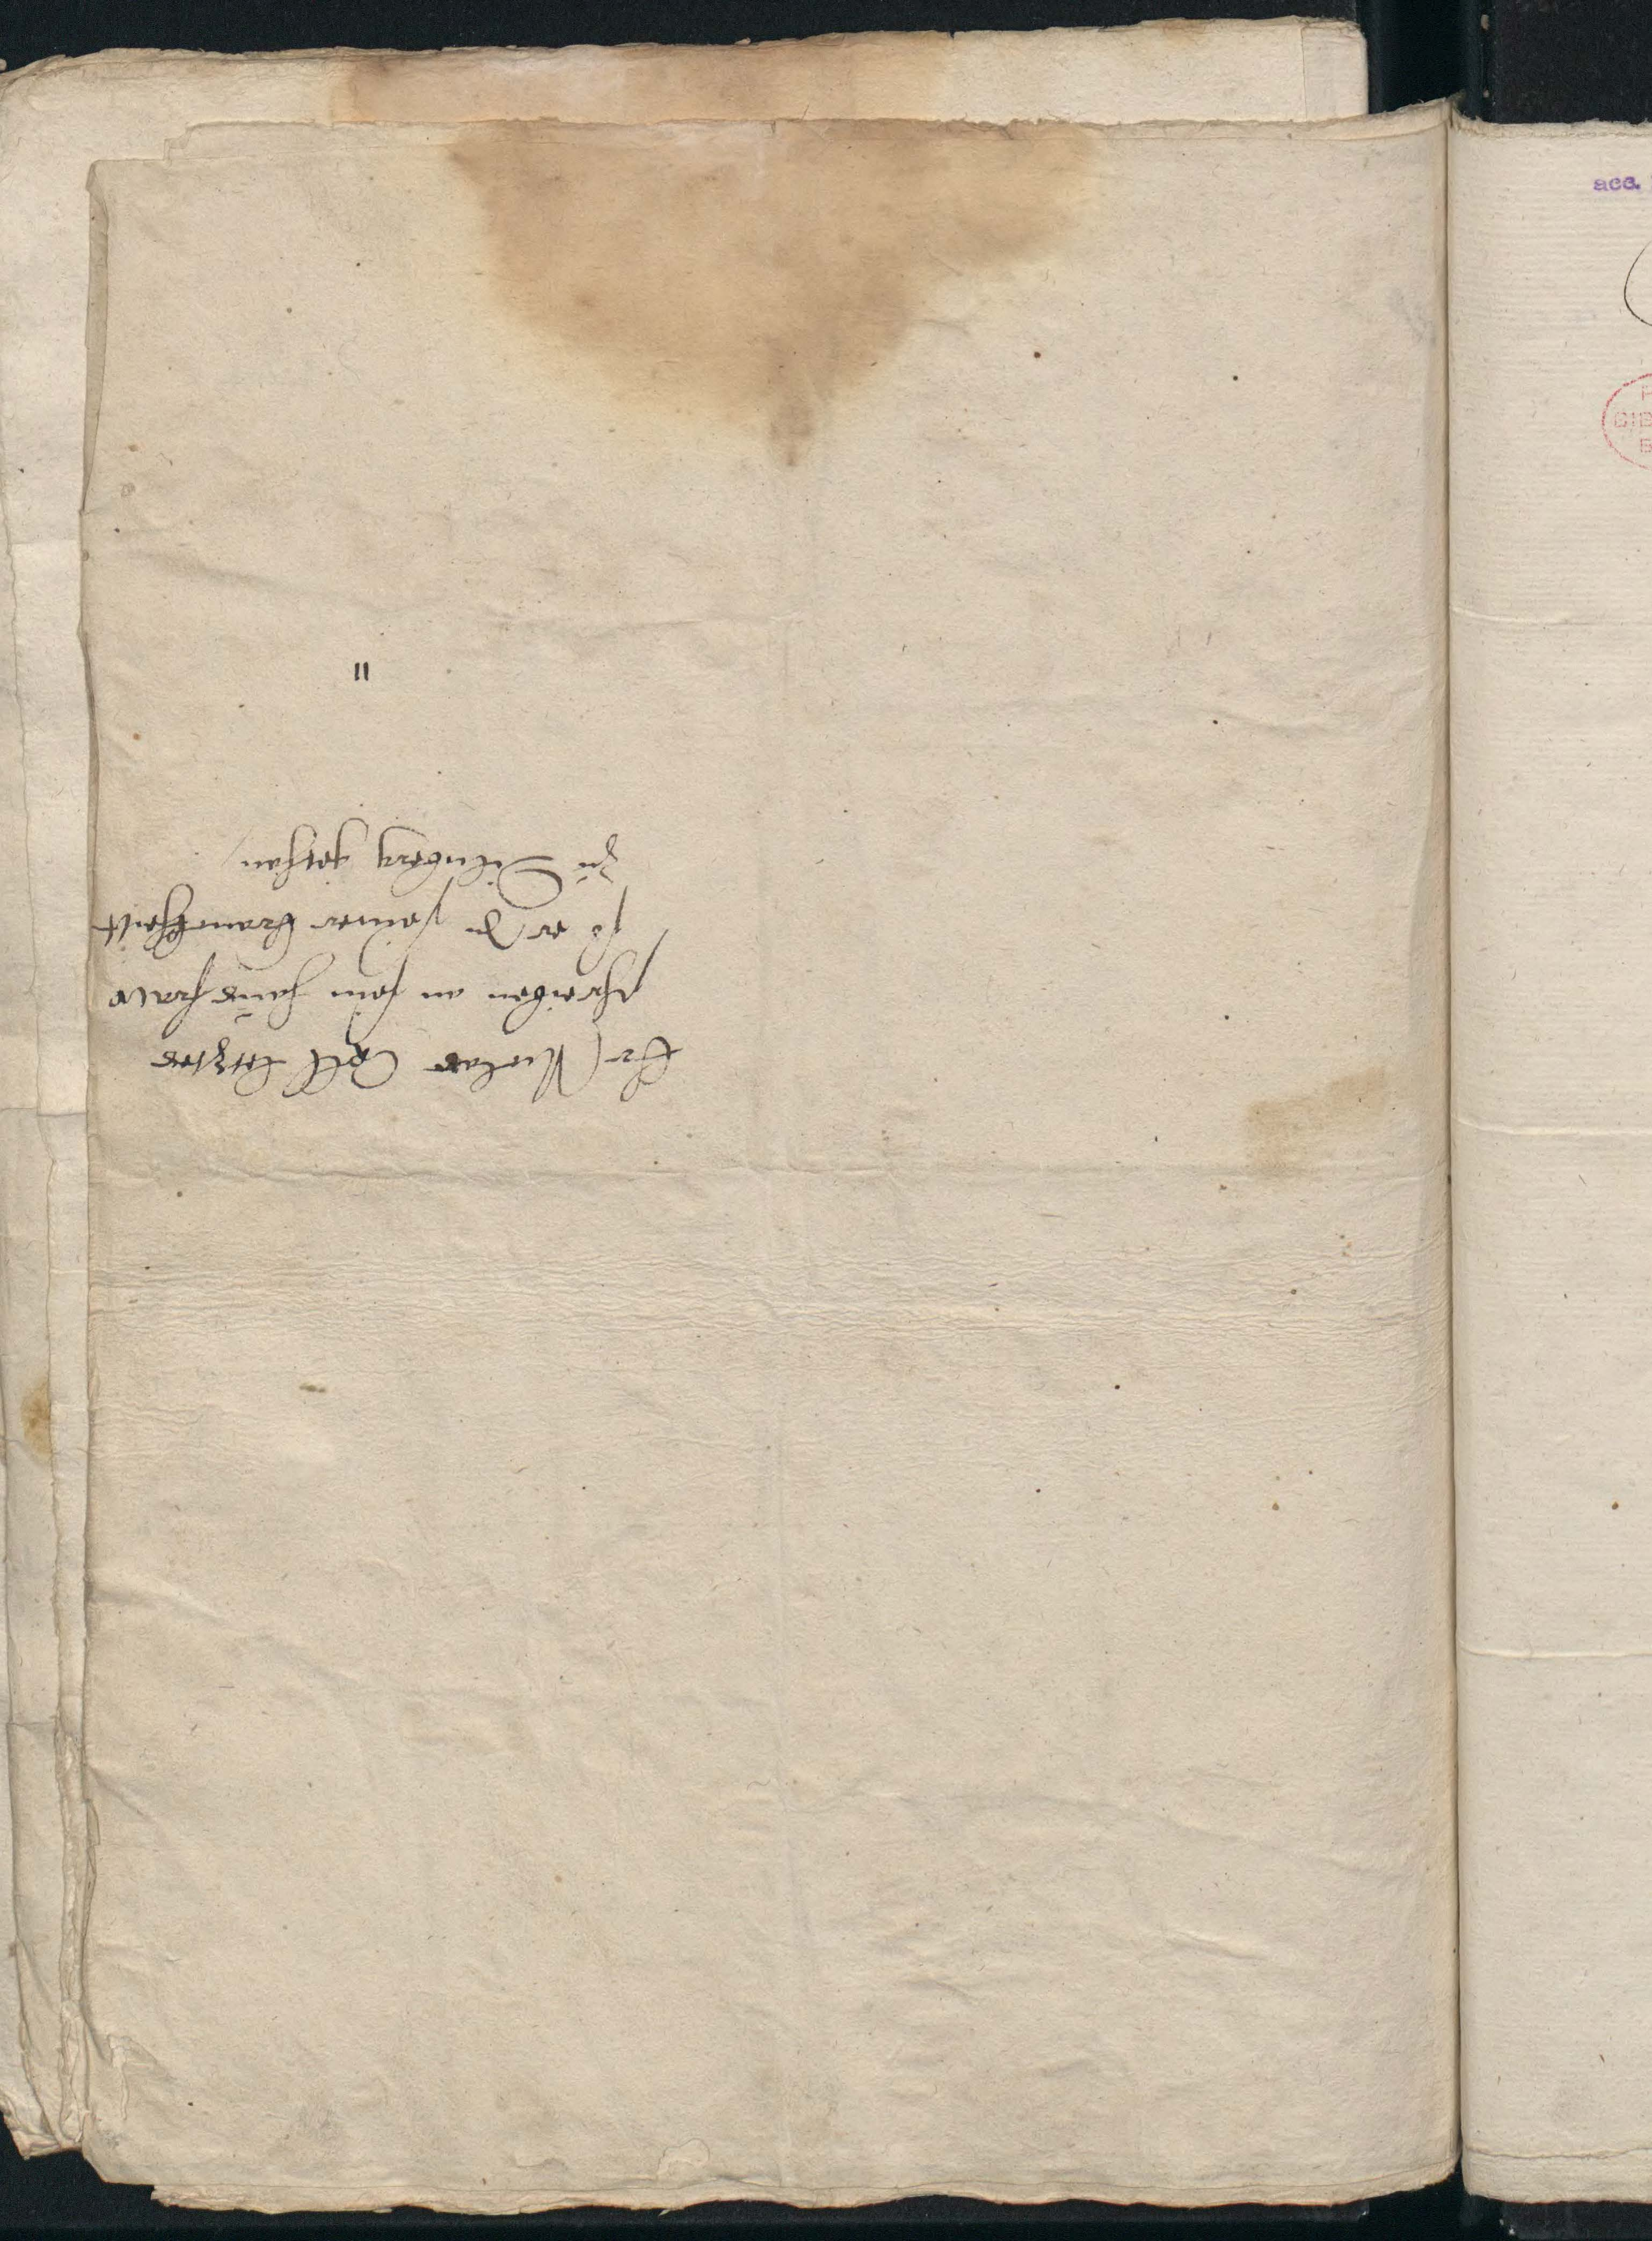 Er Niclas Apll letztes
schreiben an sein hausfraw
so er In seiner kranckheit
zu Nürnberg gethan
11
acc.